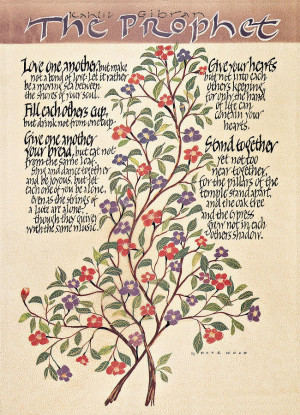 Kahlil Gibran
The Prophet
Love one another, but make
not a bond of love: Let it rather
be a moving sea between
the shores of your souls.
Fill each others cup,
but drink not from one cup.
Give one another
your bread, but eat not
from the same loaf.
Sing and dance together
and be joyous, but let
each one of you be alone,
even as the strings of
a lute are alone,
though they quiver
with the same music.
Give your hearts
but not into each
others keeping,
for only the hand
of Life can
contain your
hearts.
Stand together
yet not too
near together:
for the pillars of the
temple stand apart,
and the oak tree
and the cypress
grow not in each
others shadow.